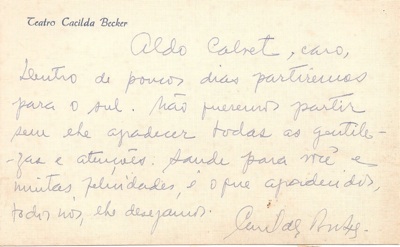 Teatro Cacilda Becker
Aldo Calvet, caro,
Dentro de poucos dias partiremos
para o sul. Não queremos partir
sem lhe agradecer todas as gentile-
-zas e atenções. Saude para você e
muitas felicidades, é o que agradecidos,
todos nós, lhe desejamos.
Cacilda Becker